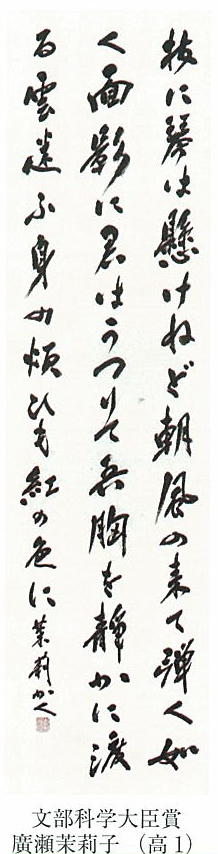 枝に琴は懸けねど朝風の来て弾く如
く面影に君はうつりて吾胸を静かに渡
る雲迷ふ身の煩ひも紅の色に 茉莉かく
文部科学大臣賞
廣瀬茉莉子（高1）